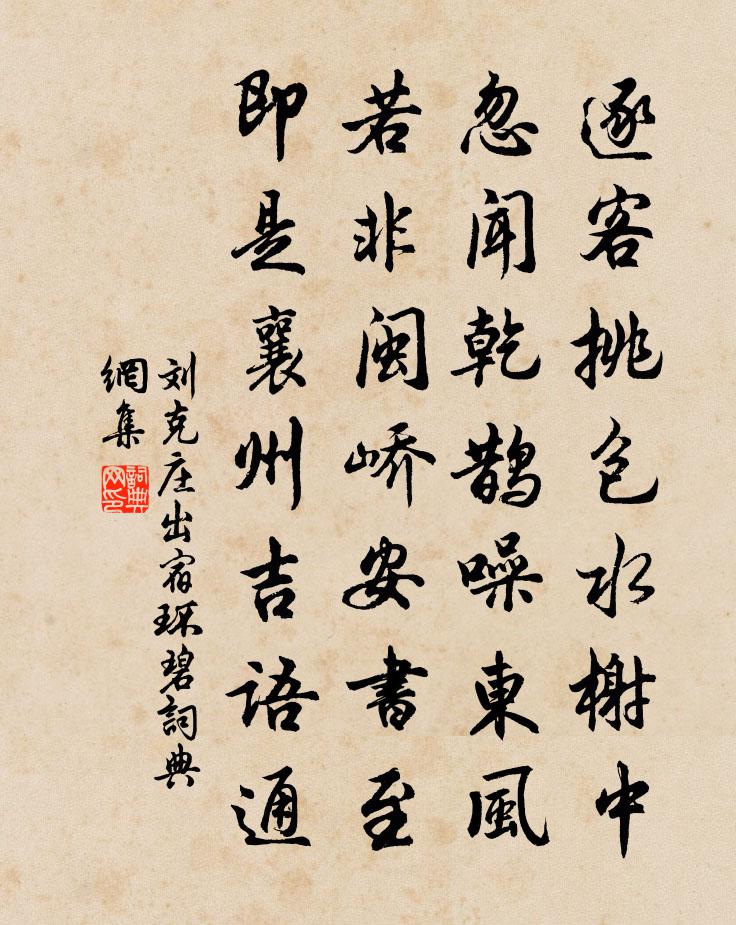 逐客挑包水榭中
忽聞乾鵲噪東風
若非閩嶠安書至
即是襄州吉語通
刘克庄出宿环碧詞典
網集
詞典
网印